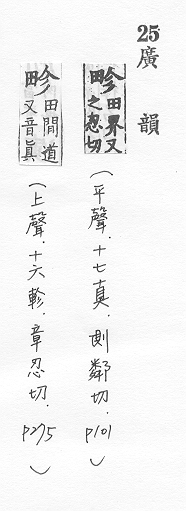 25廣韻
畛田界又之忍切
(平聲.十七真.側鄰切.P101)
畛田間道又音真
(上聲.十六軫.章忍切.P275)